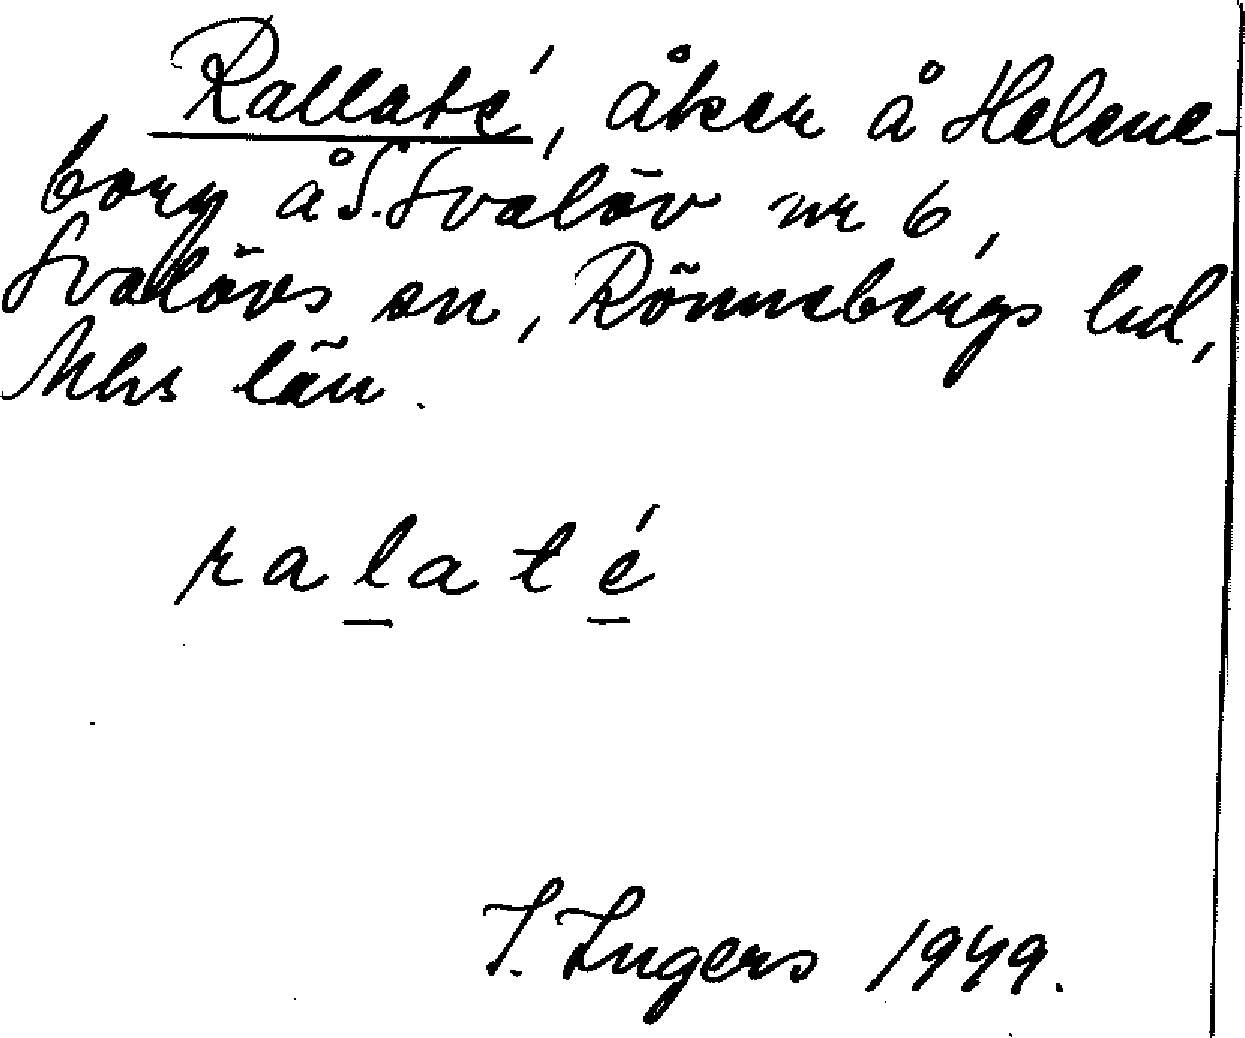 Rallaté, åker å Helene-
borg å S. Svalöv nr 6,
Svalövs sn, Rönnebergs hd,
Mhs län.
ralaté
I. Ingers 1949.